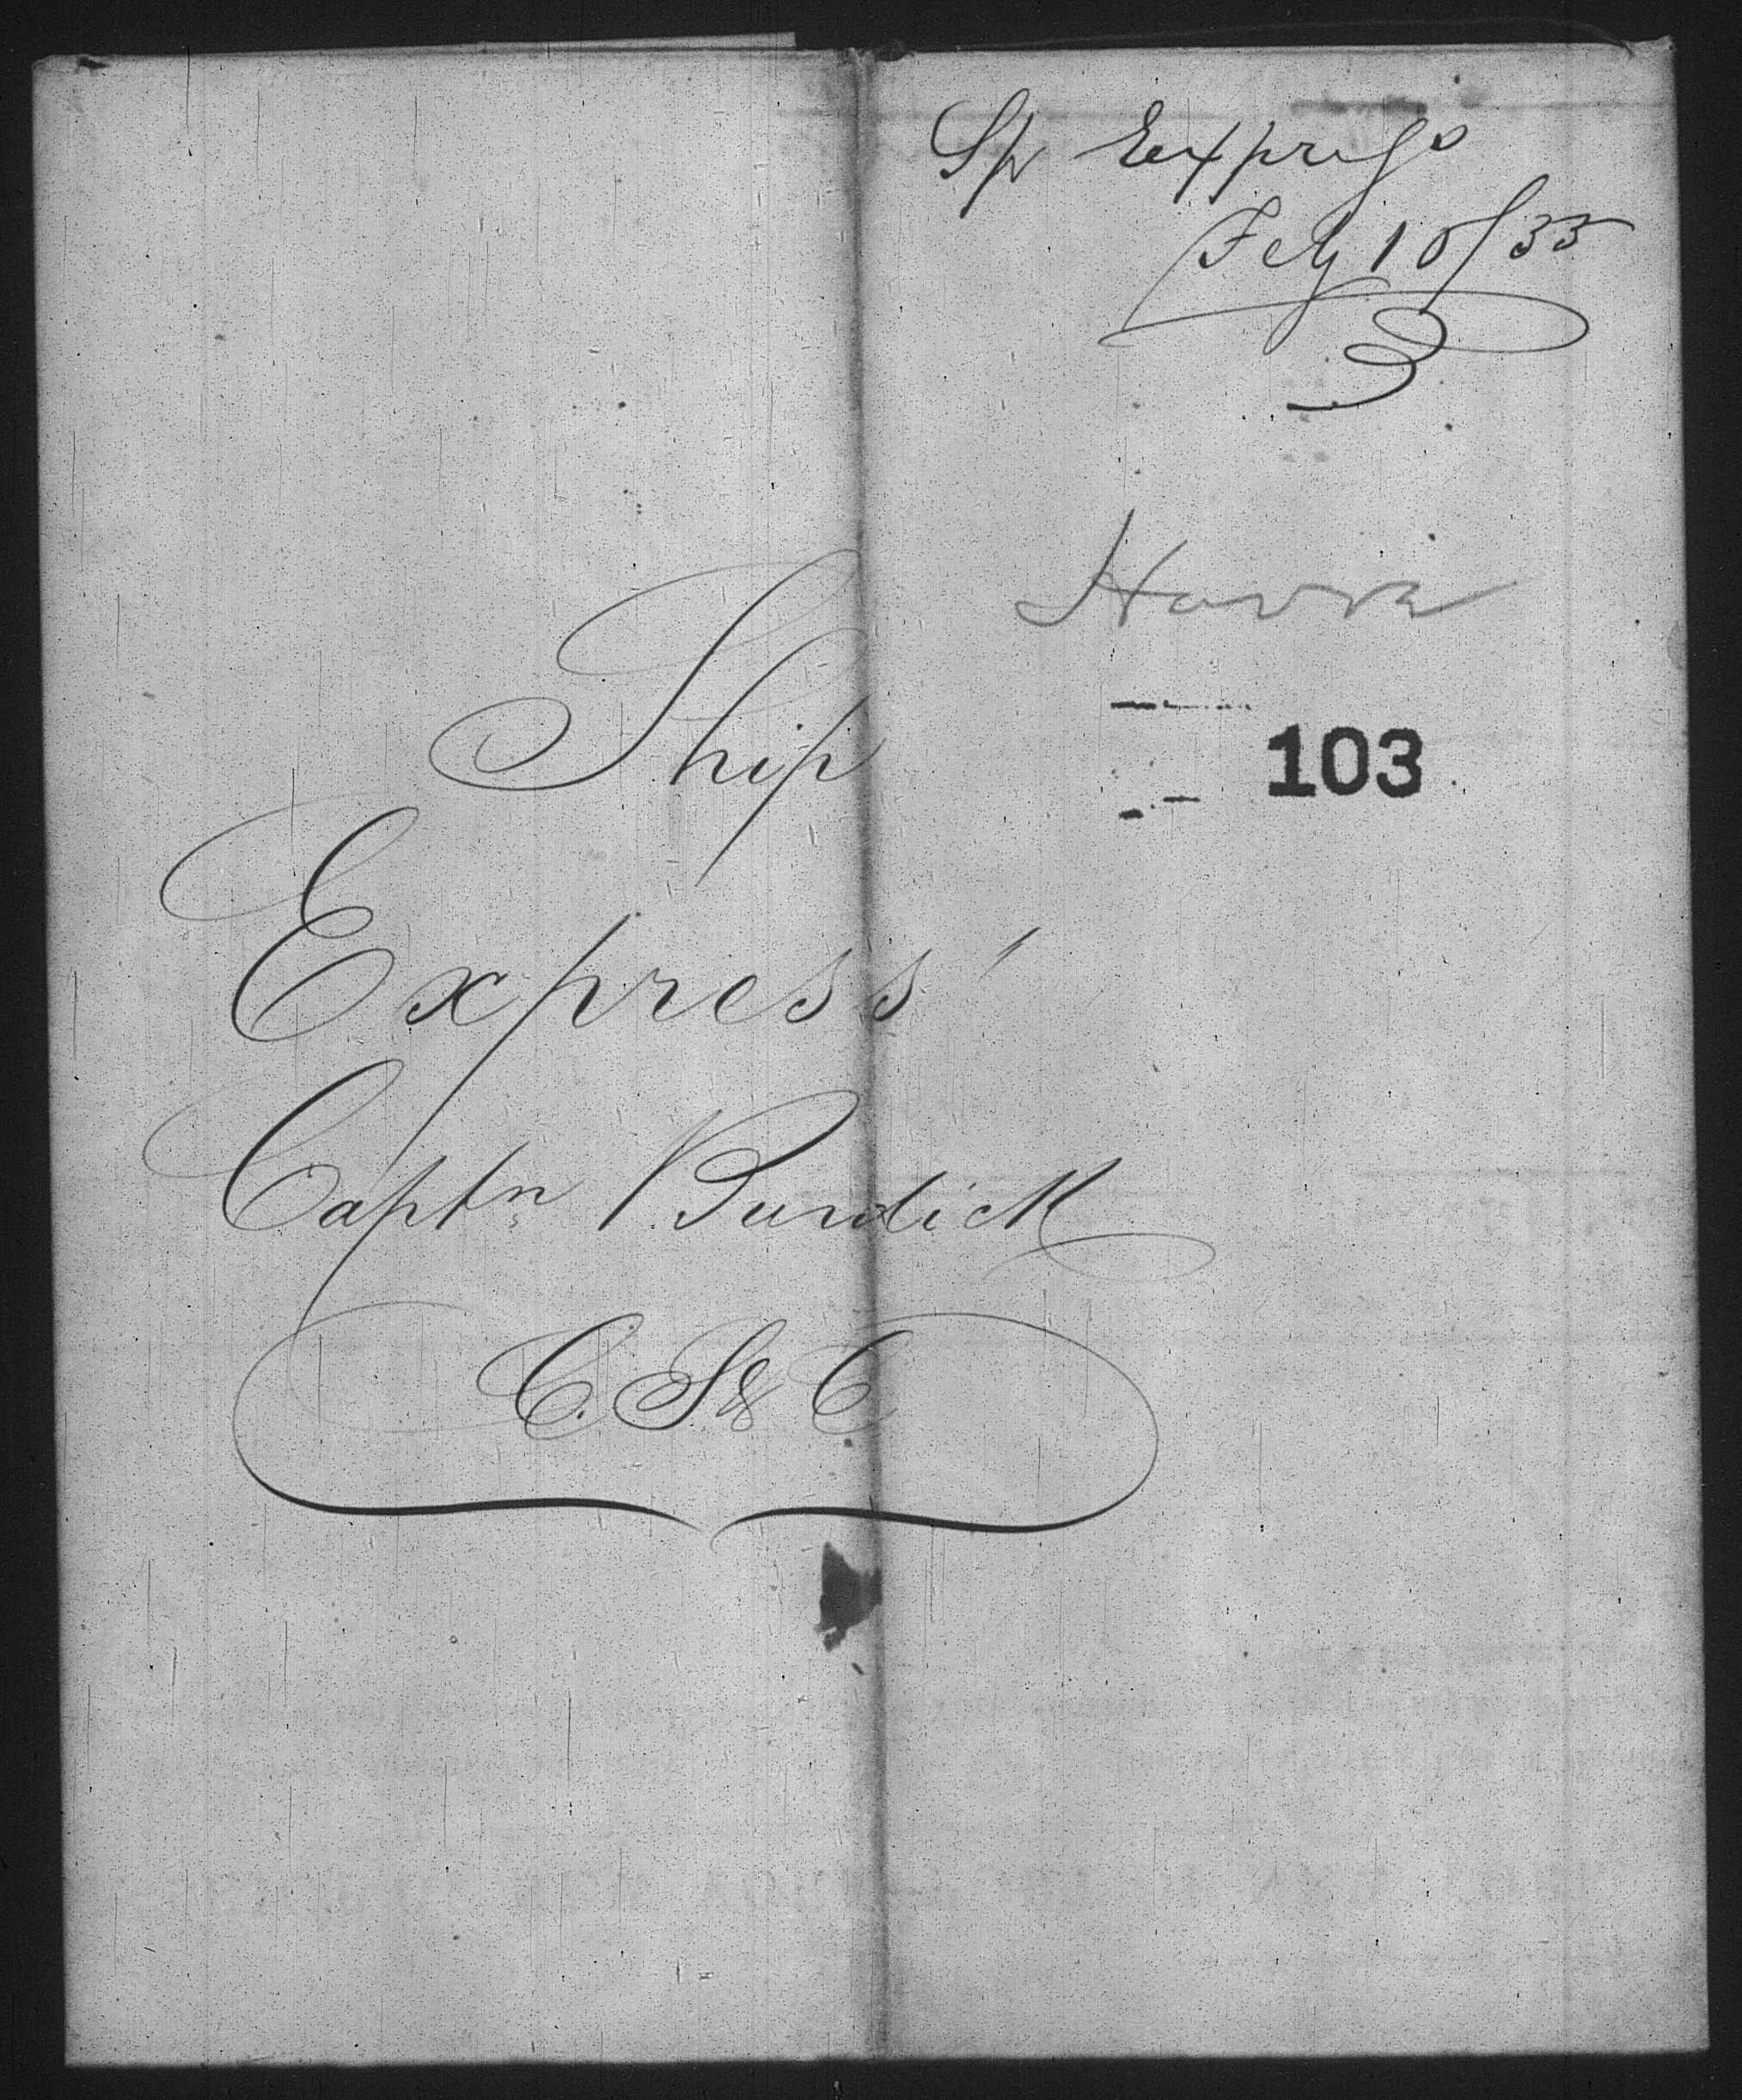 Sp Express
Feby 10/35
Havre
103
Ship
Express
Captn Burdick
C. S & C